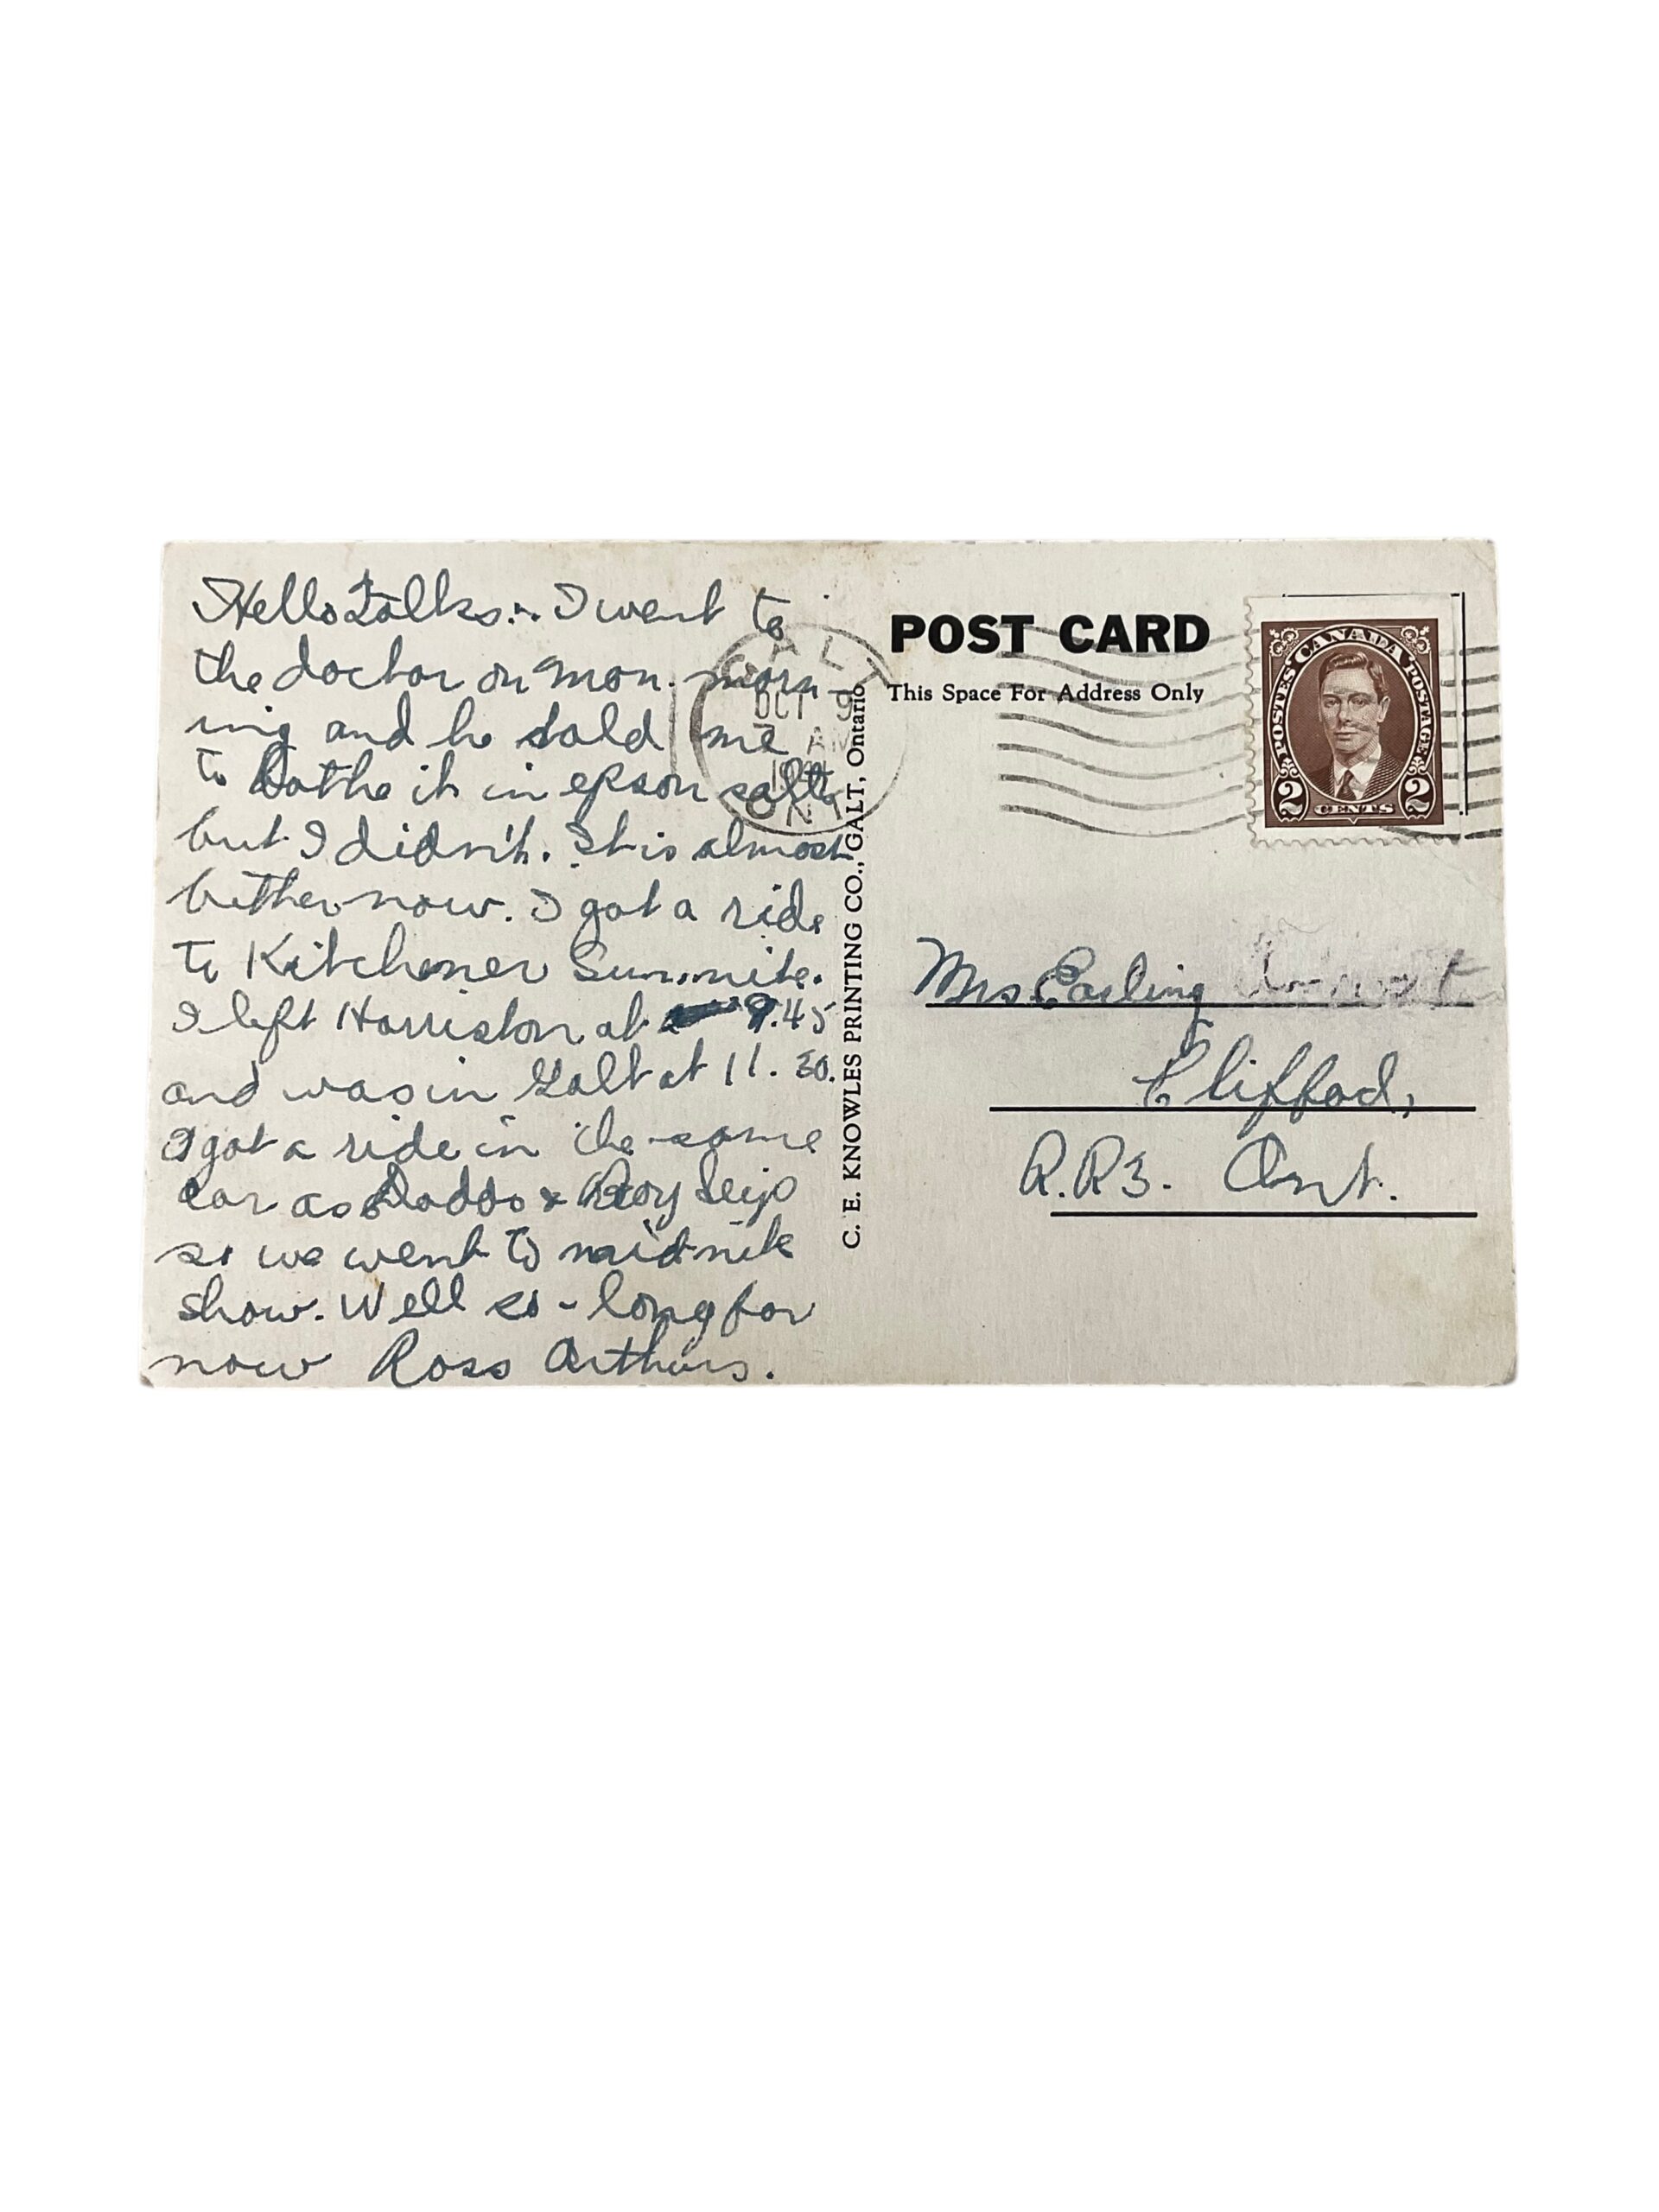 Hello Folks:- I went to
the doctor on Mon. morn-
ing and he told me
to bathe it in epson salts
but I didn't. It is almost
better now. I got a ride
to Kitchener Sun. nite.
I left Harriston at 9.45
and was in Galt at 11.30.
I got a ride in the same
car as Dodds & Roy
so we went to midnite
show. Well so-long for
now Ross Arthurs.
GALT
OCT 9
AM
ONT
C. E. KNOWLES PRINTING CO., GALT, Ontario
POST CARD
This Space For Address Only
POSTES CANADA POSTAGE
2 CENTS 2
Mrs Earling
Cliffod,
R.R3. Ont.